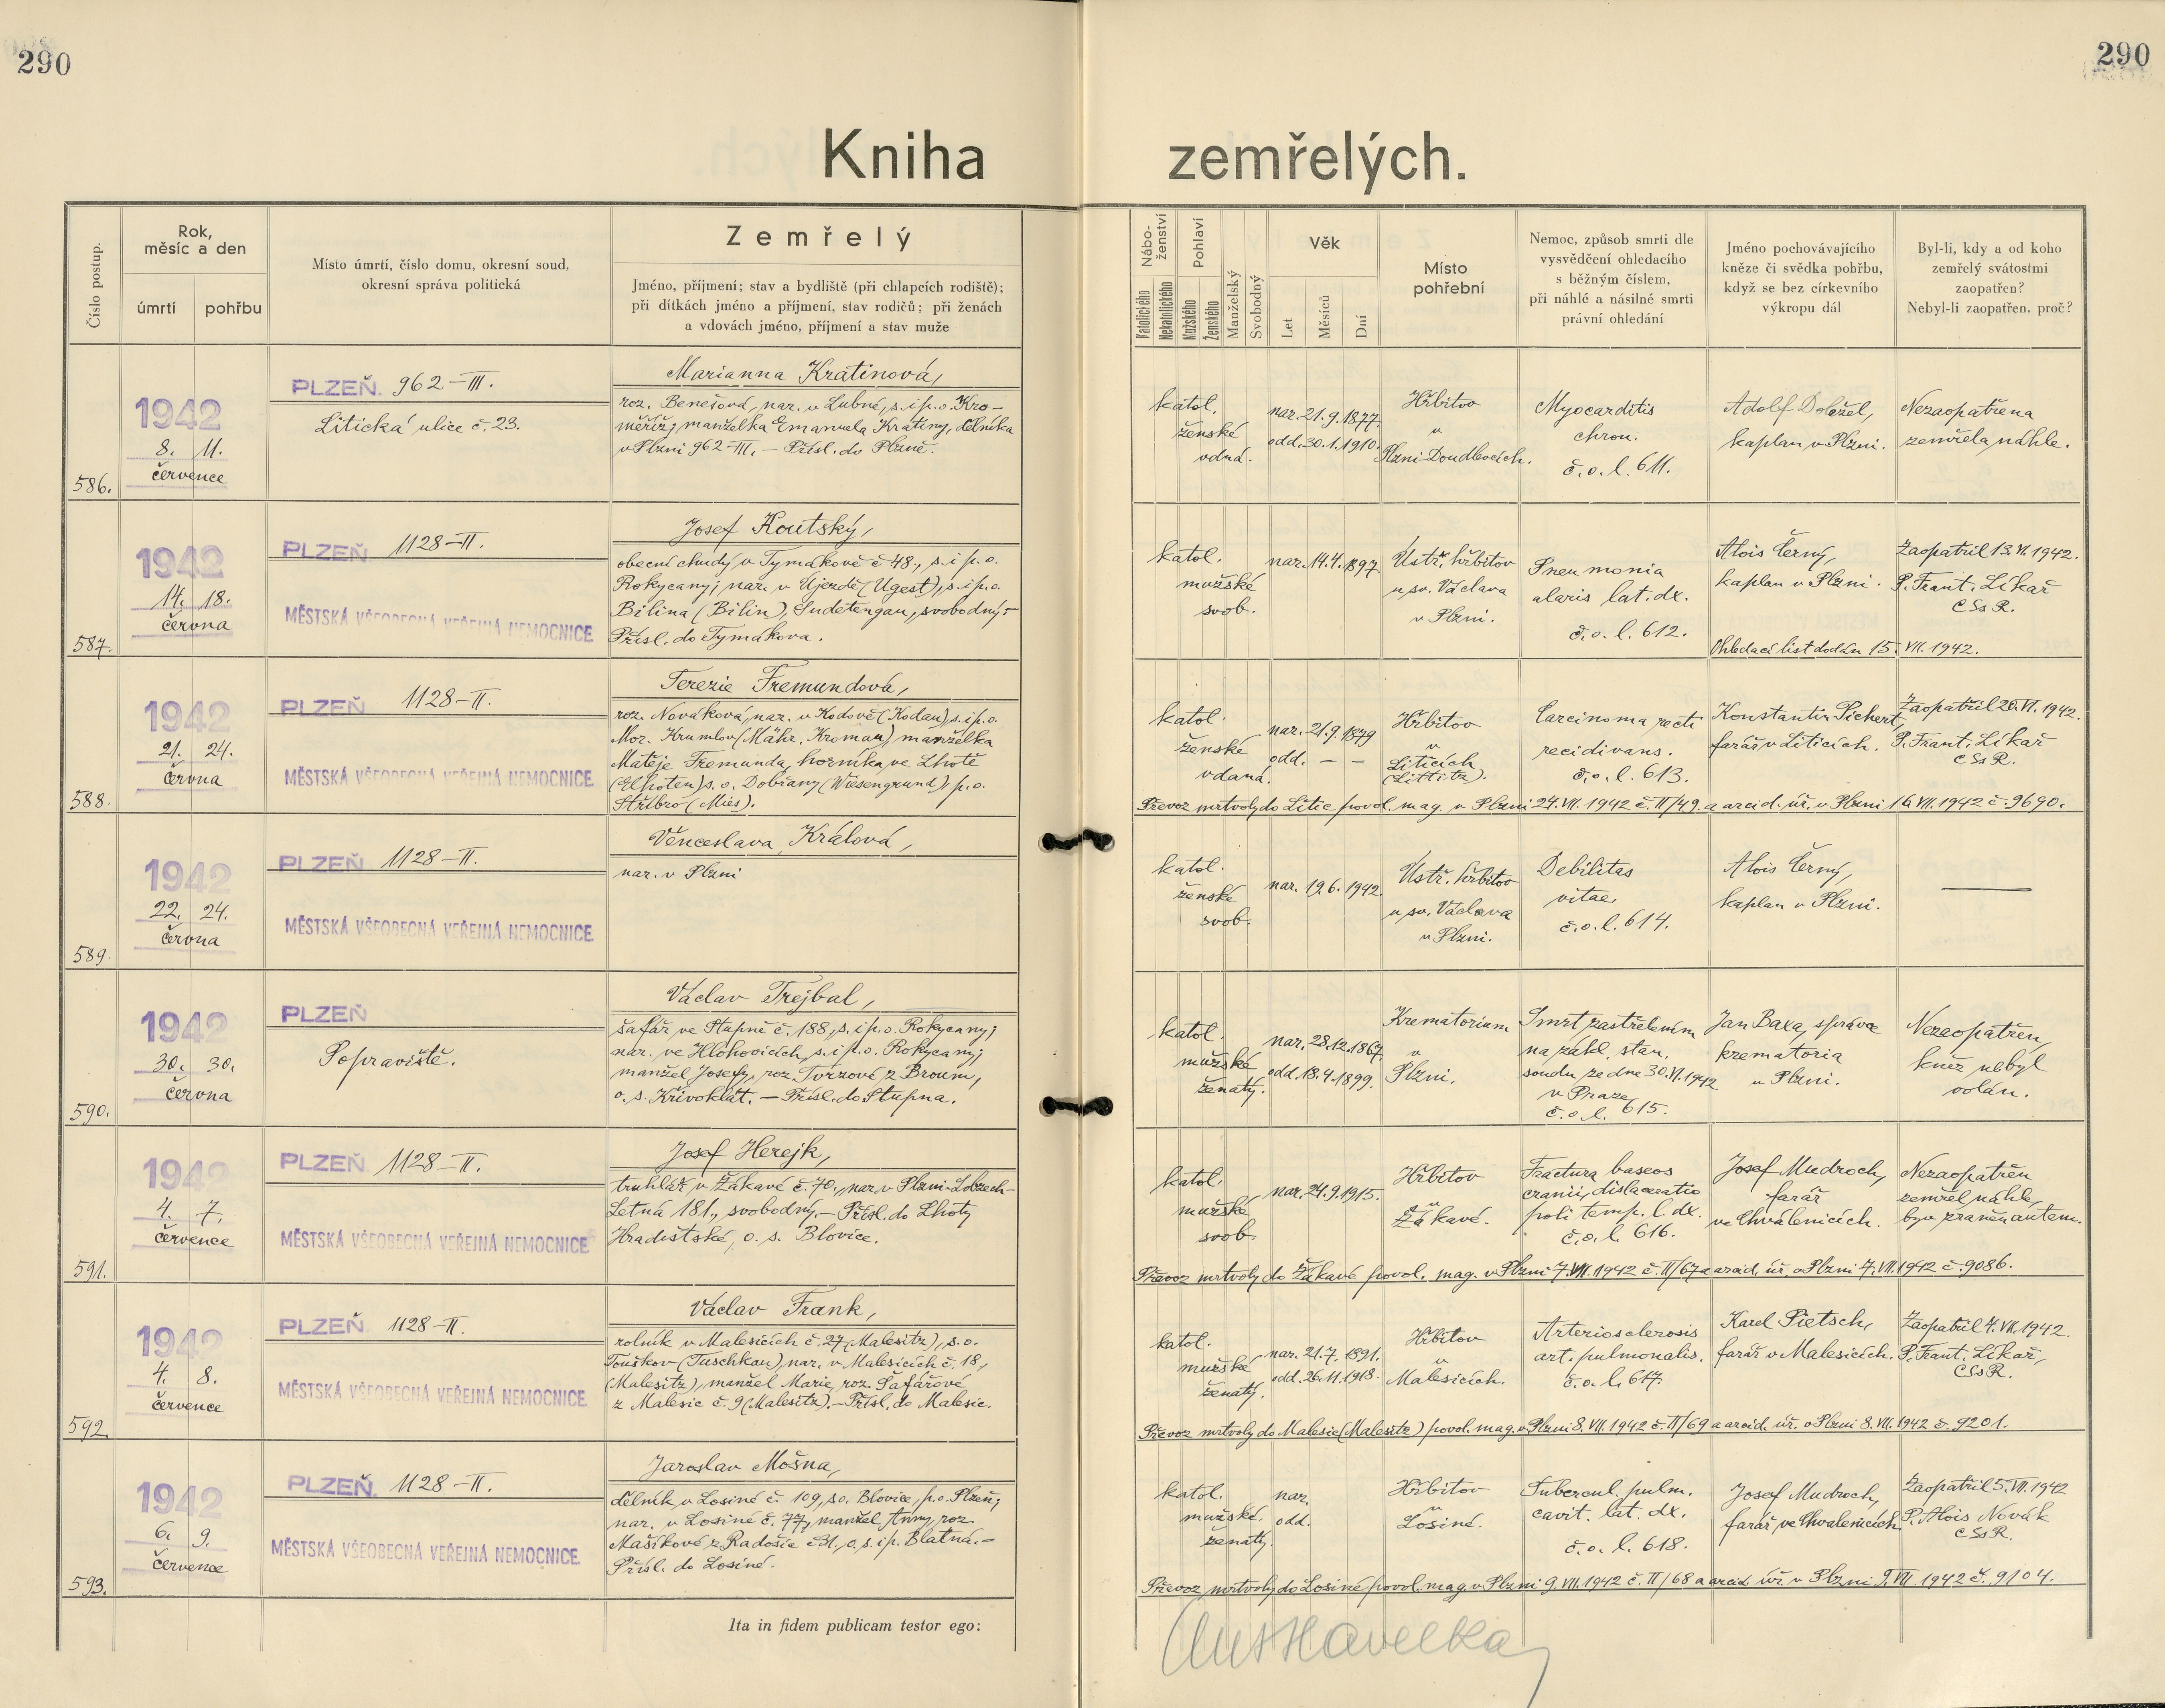 290
290
Kniha zemřelých.
Číslo postup.
Rok,
měsíc a den
úmrtí
pohřbu
Místo úmrtí, číslo domu, okresní soud,
okresní správa politická
Zemřelý
Jméno, příjmení; stav a bydliště (při chlapcích rodiště);
při dítkách jméno a příjmení, stav rodičů; při ženách
a vdovách jméno, příjmení a stav muže
Nábo-
ženství
Katolického
Nekatolického
Pohlaví
Mužského
Ženského
Manželský
Svobodný
Věk
Let
Měsíců
Dní
Místo
pohřební
Nemoc, způsob smrti dle
vysvědčení ohledacího
s běžným číslem,
při náhlé a násilné smrti
právní ohledání
Jméno pochovávajícího
kněze či svědka pohřbu,
když se bez církevního
výkropu dál
Byl-li, kdy a od koho
zemřelý svátostmi
zaopatřen?
Nebyl-li zaopatřen, proč?
586.
1942
8. 11.
července
PLZEŇ 962-III.
Litická ulice č. 23.
Marianna Kratinová,
roz. Benešová, nar. v Lubné, s. i p. o. Kro-
měříž, manželka Emanuela Kratiny, dělníka
v Plzni 962-III. – Přísl. do Plzně.
katol.
ženské
vdaná.
nar. 21.9.1877.
odd. 30.1.1910.
Hřbitov
v
Plzni-Doudlevcích.
Myocarditis
chron.
č. o. l. 611.
Adolf Doležel,
kaplan v Plzni.
Nezaopatřena
zemřela náhle.
587.
1942
14. 18.
června
PLZEŇ 1128-II.
MĚSTSKÁ VŠEOBECNÁ VEŘEJNÁ NEMOCNICE
Josef Koutský,
obecní chudý v Tymákově č 48., s. i p. o.
Rokycany; nar. v Újezdě (Ugest), s. i p. o.
Bilina (Bilin), Sudetengau, svobodný. –
Přísl. do Tymákova.
katol.
mužské
svob.
nar. 14.4.1897.
Ústř. hřbitov
u sv. Václava
v Plzni.
Pneumonia
alaris lat. dx.
č. o. l. 612.
Alois Černý,
kaplan v Plzni.
Zaopatřil 13.VI.1942.
P. Frant. Líkař
CSsR.
Ohledací list dodán 15. VII. 1942.
588.
1942
21. 24.
června
PLZEŇ 1128-II.
MĚSTSKÁ VŠEOBECNÁ VEŘEJNÁ NEMOCNICE
Terezie Fremundová,
roz. Nováková, nar. v Kodově (Kodau), s. i p. o.
Mor. Krumlov (Mähr. Kromau), manželka
Matěje Fremunda, horníka ve Lhotě
(Elhoten) s. o. Dobřany (Wiesengrund), p. o.
Stříbro (Mies).
katol.
ženské
vdaná.
nar. 21.9.1879
odd. – –
Hřbitov
v
Liticích
(Littitz).
Carcinoma recti
recidivans.
č. o. l. 613.
Konstantin Pichert,
farář v Liticích.
Zaopatřil 20.VI.1942.
P. Frant. Líkař
CSsR.
Převoz mrtvoly do Litic povol. mag. v Plzni 24. VII. 1942 č. II/49. a arcid. úř. v Plzni 16 VII. 1942 č. 9690.
589.
1942
22. 24.
června
PLZEŇ 1128-II.
MĚSTSKÁ VŠEOBECNÁ VEŘEJNÁ NEMOCNICE
Věnceslava Králová,
nar. v Plzni
katol.
ženské
svob.
nar. 19.6.1942.
Ústř. hřbitov
u sv. Václava
v Plzni.
Debilitas
vitae
č. o. l. 614.
Alois Černý,
kaplan v Plzni.
590.
1942
30. 30.
června
PLZEŇ
Popraviště.
Václav Trejbal,
šafář ve Stupně č. 188, s. i p. o. Rokycany;
nar. ve Hlohovicích, s. i p. o. Rokycany;
manžel Josefy, roz. Tvrzové z Broum,
o. s. Křivoklát. – Přísl. do Stupna.
katol.
mužské
ženatý.
nar. 28.12.1867.
odd. 18.4.1899.
Krematorium
v
Plzni.
Smrt zastřelením
na zákl. stan.
soudu ze dne 30.VI.1942
v Praze
č. o. l. 615.
Jan Baxa, správce
krematoria
v Plzni.
Nezaopatřen,
kněz nebyl
volán.
591.
1942
4. 7.
července
PLZEŇ 1128-II.
MĚSTSKÁ VŠEOBECNÁ VEŘEJNÁ NEMOCNICE
Josef Herejk,
truhlář v Žákavé č. 70., nar. v Plzni-Lobzech-
Letná 181., svobodný. – Přísl. do Lhoty
Hradišťské, o. s. Blovice.
katol.
mužské
svob.
nar. 24.9.1915.
Hřbitov
v
Žákavé.
Fractura baseos
cranii, dislaceratio
poli temp. l. dx.
č. o. l. 616.
Josef Mudroch,
farář
ve Chválenicích.
Nezaopatřen
zemřel náhle,
byv zraněn autem.
Převoz mrtvoly do Žákavé povol. mag. v Plzni 7. VII. 1942 č. II/67 a arcid. úř. v Plzni 7. VII. 1942 č. 9086.
592.
1942
4. 8.
července
PLZEŇ 1128-II.
MĚSTSKÁ VŠEOBECNÁ VEŘEJNÁ NEMOCNICE
Václav Frank,
rolník v Malesicích č. 27 (Malesitz), s. o.
Touškov (Tuschkau), nar. v Malesicích č. 18,
(Malesitz), manžel Marie, roz. Šafářové
z Malesic č. 9 (Malesitz). – Přísl. do Malesic.
katol.
mužské
ženatý.
nar. 21.7.1891.
odd. 26.11.1918.
Hřbitov
v
Malesicích.
Arteriosclerosis
art. pulmonalis.
č. o. l. 617.
Karel Pietsch,
farář v Malesicích.
Zaopatřil 4.VII.1942.
P. Frant. Líkař,
CSsR.
Převoz mrtvoly do Malesic (Malesitz) povol. mag. v Plzni 8. VII. 1942 č. II/69 a arcid. úř. v Plzni 8. VII. 1942 č. 9201.
593.
1942
6. 9.
července
PLZEŇ 1128-II.
MĚSTSKÁ VŠEOBECNÁ VEŘEJNÁ NEMOCNICE
Jaroslav Mošna,
dělník v Losiné č. 109, s. o. Blovice, p. o. Plzeň;
nar. v Losiné č. 77, manžel Anny, roz.
Mašíkové z Radošic č 31., o. s. i p. Blatná. –
Přísl. do Losiné.
katol.
mužské.
ženatý.
nar.
odd.
Hřbitov
v
Losiné.
Tubercul. pulm.
cavit. lat. dx.
č. o. l. 618.
Josef Mudroch,
farář ve Chválenicích.
Zaopatřil 5.VII.1942
P. Alois Novák
CSsR.
Převoz mrtvoly do Losiné povol. mag. v Plzni 9. VII. 1942 č. II/68 a arcid. úř. v Plzni 9. VII. 1942 č. 9104.
Ita in fidem publicam testor ego:
Havelka